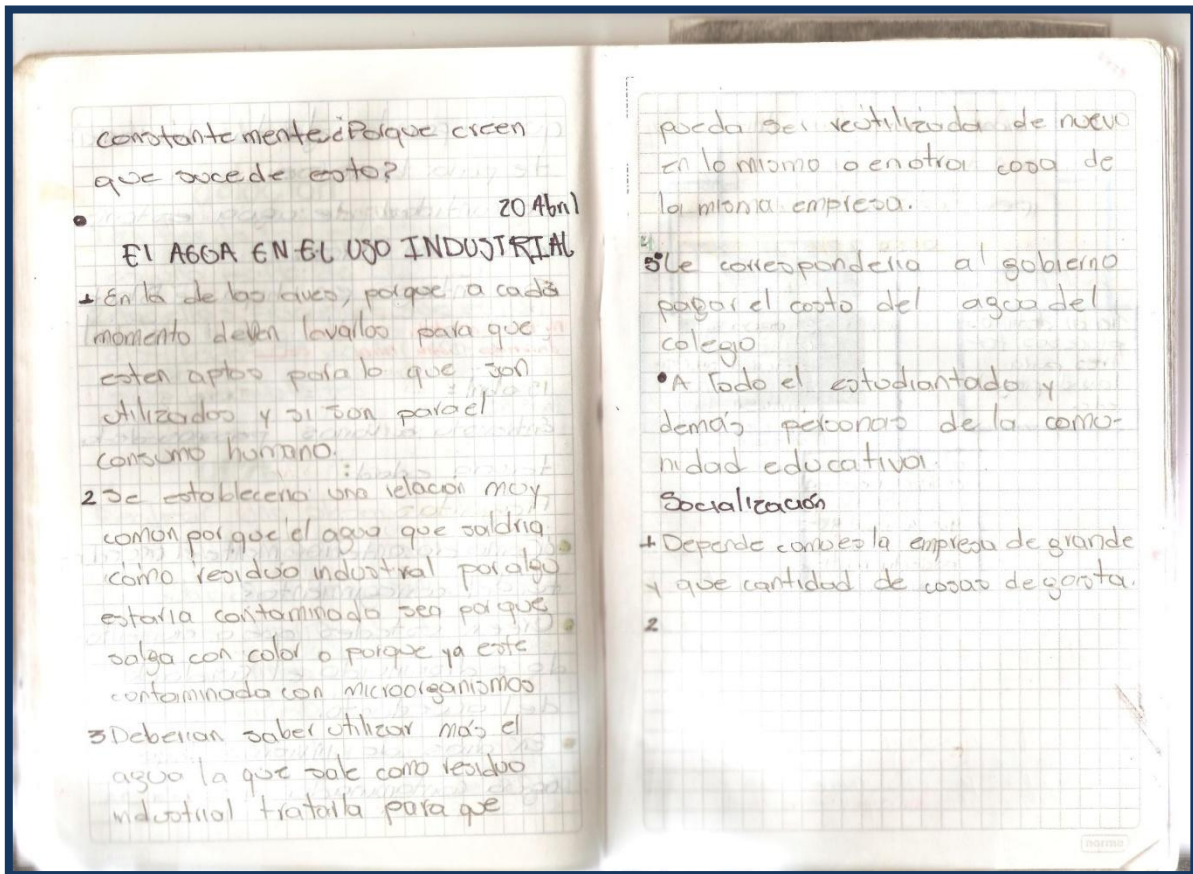 constantemente ¿Porque creen
que sucede esto?
20 Abril
El AGUA EN EL USO INDUSTRIAL
1 En la de las aves, porque a cada
momento deven lavarlos para que
esten aptos para lo que son
utilizados y si son para el
consumo humano.
2 Se estableceria una relación muy
comon porque el agua que saldria
como residuo industrial por algo
estaria contaminado sea porque
salga con color o porque ya este
contaminado con microorganismos
3 Deberian saber utilizar más el
agua la que sale como residuo
industrial tratarla para que
pueda ser reutilizada de nuevo
en lo mismo o en otra cosa de
la misma empresa.
5 Le corresponderia al gobierno
pagar el costo del agua del
colegio
• A Todo el estudiantado y
demás personas de la comu-
nidad educativa.
Socialización
1 Depende como es la empresa de grande
y que cantidad de cosas de gasta.
2
norma